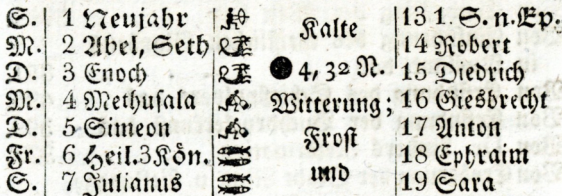 S. 1 Neujahr
M. 2 Abel, Seth
D. 3 Enoch
M. 4 Methusala
D. 5 Simeon
Fr. 6 Heil.3Kön.
S. 7 Julianus
Kalte
4, 32 N.
Witterung;
Frost
und
13 1. S. n. Ep.
14 Robert
15 Diedrich
16 Giesbrecht
17 Anton
18 Ephraim
19 Sara